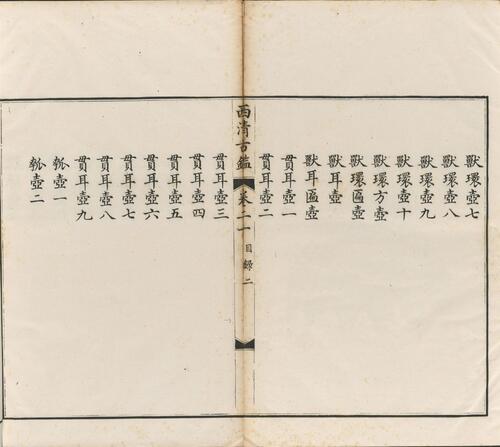 獸環壺七
獸環壺八
獸環壺九
獸環壺十
獸環方壺
獸環匾壺
獸耳壺
獸耳匾壺
貫耳壺一
貫耳壺二
西清古鑑
卷二一
目錄
二
貫耳壺三
貫耳壺四
貫耳壺五
貫耳壺六
貫耳壺七
貫耳壺八
貫耳壺九
瓠壺一
瓠壺二